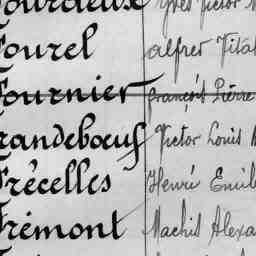 Yves Victor
Fourel Alfred Vital
Fournier François Pierre
randebœuf Victor Louis
Frécelles Henri Emil
Frémont Machis Alexa